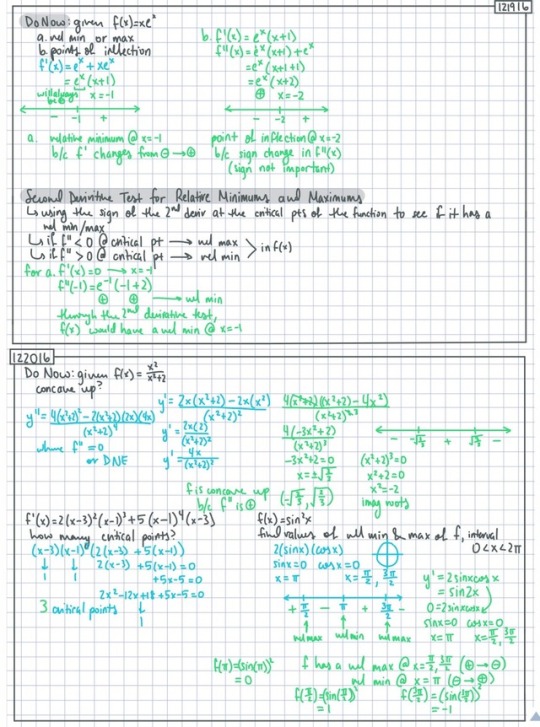 121916
Do Now: given f(x)=xeˣ
a. rel min or max
b. points of inflection
f'(x) = eˣ + xeˣ
= eˣ(x+1)
will always be ⊕ x=-1
- -1 +
a. relative minimum @ x=-1
b/c f' changes from ⊖→⊕
b. f'(x) = eˣ(x+1)
f"(x) = eˣ(x+1)+eˣ
= eˣ(x+1+1)
= eˣ(x+2)
⊕ x=-2
- -2 +
point of inflection @ x=-2
b/c sign change in f"(x)
(sign not important)
Second Derivitive Test for Relative Minimums and Maximums
↳ using the sign of the 2nd deriv at the critical pts of the function to see if it has a
rel min/max
↳ if f" < 0 @ critical pt → rel max
↳ if f" > 0 @ critical pt → rel min > in f(x)
for a. f'(x)=0 → x=-1
f"(-1)=e⁻¹(-1+2)
⊕ ⊕ → rel min
through the 2nd derivative test,
f(x) would have a rel min @ x=-1
122016
Do Now: given f(x) = x²/(x²+2)
concave up?
y' = 2x(x²+2)-2x(x²)/(x²+2)²
y' = 2x(2)/(x²+2)²
y' = 4x/(x²+2)²
y" = 4(x²+2)²-2(x²+2)(2x)(4x)/(x²+2)⁴
where f"=0
or DNE
4(x²+2)(x²+2)-4x²)/(x²+2)
4(-3x²+2)/(x²+2)³
-3x²+2=0
x=±√2/3
(x²+2)³=0
x²+2=0
x²=-2
imag roots
- -√2/3 + √2/3 -
f is concave up (-√2/3, √2/3)
b/c f" is ⊕
f'(x)=2(x-3)²(x-1)³+5(x-1)⁴(x-3)
how many critical points?
(x-3)(x-1)³(2(x-3)+5(x-1))
2(x-3)+5(x-1)=0
+5x-5=0
2x²-12x+18+5x-5=0
↓ ↓ ↓
1 1 1
3 critical points
f(x)=sin²x
find values of rel min & max of f, interval
0<x<2π
2(sinx)(cosx)
sinx=0 cosx=0
x=π x=π/2, 3π/2
+ π/2 - π + 3π/2 -
rel max rel min rel max
y'=2sinxcosx
=sin2x
0=2sinxcosx
sinx=0 cosx=0
x=π x=π/2, 3π/2
f has a rel max @ x=π/2, 3π/2 (⊕→⊖)
rel min @ x=π (⊖→⊕)
f(π)=(sin(π))²
=0
f(π/2)=(sin(π/2))²
=1
f(3π/2)=(sin(3π/2))²
=-1